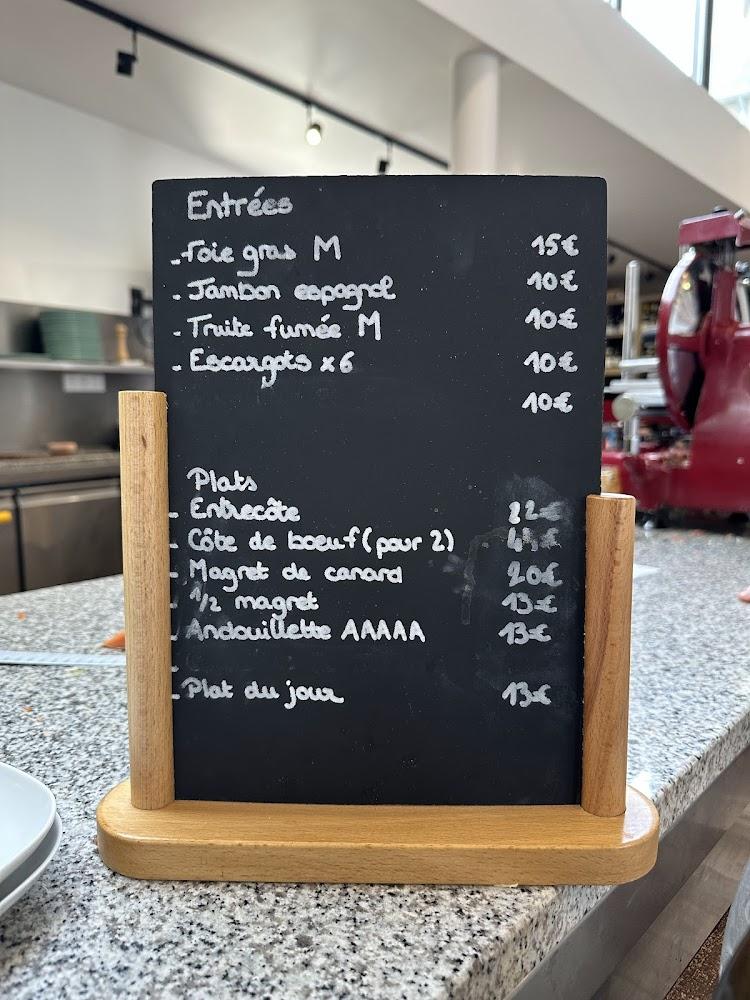 Entrées
- Foie gras M 15€
- Jambon espagnol 10€
- Truite fumée M 10€
- Escargots x6 10€
10€
Plats
- Entrecôte 22€
- Côte de boeuf (pour 2)
- Magret de canard 20€
- 1/2 magret 13€
- Andouillette AAAAA 13€
-
- Plat du jour 13€